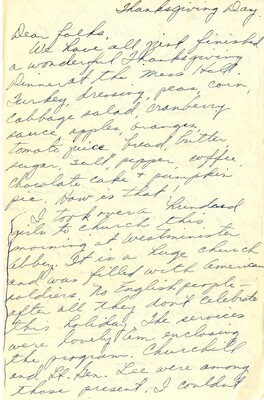 Thanksgiving Day.
Dear Folks,
We have all just finished
a wonderful Thanksgiving
Dinner at the Mess Hall.
Turkey, dressing, peas, corn,
cabbage salad, cranberry
sauce, apples, oranges,
tomato juice, bread, butter
sugar, salt, pepper, coffee,
chocolate cake & pumpkin
pie. How is that!
I took over a hundred
girls to church this
morning at Westminste
Abbey. It is a huge church
and was filled with American
soldiers. No English people -
after all they don't celebrate
this holiday. The services
were lovely, im enclosing
the program. Churchill
and Lt. Gen. Lee were among
those present, I couldn't